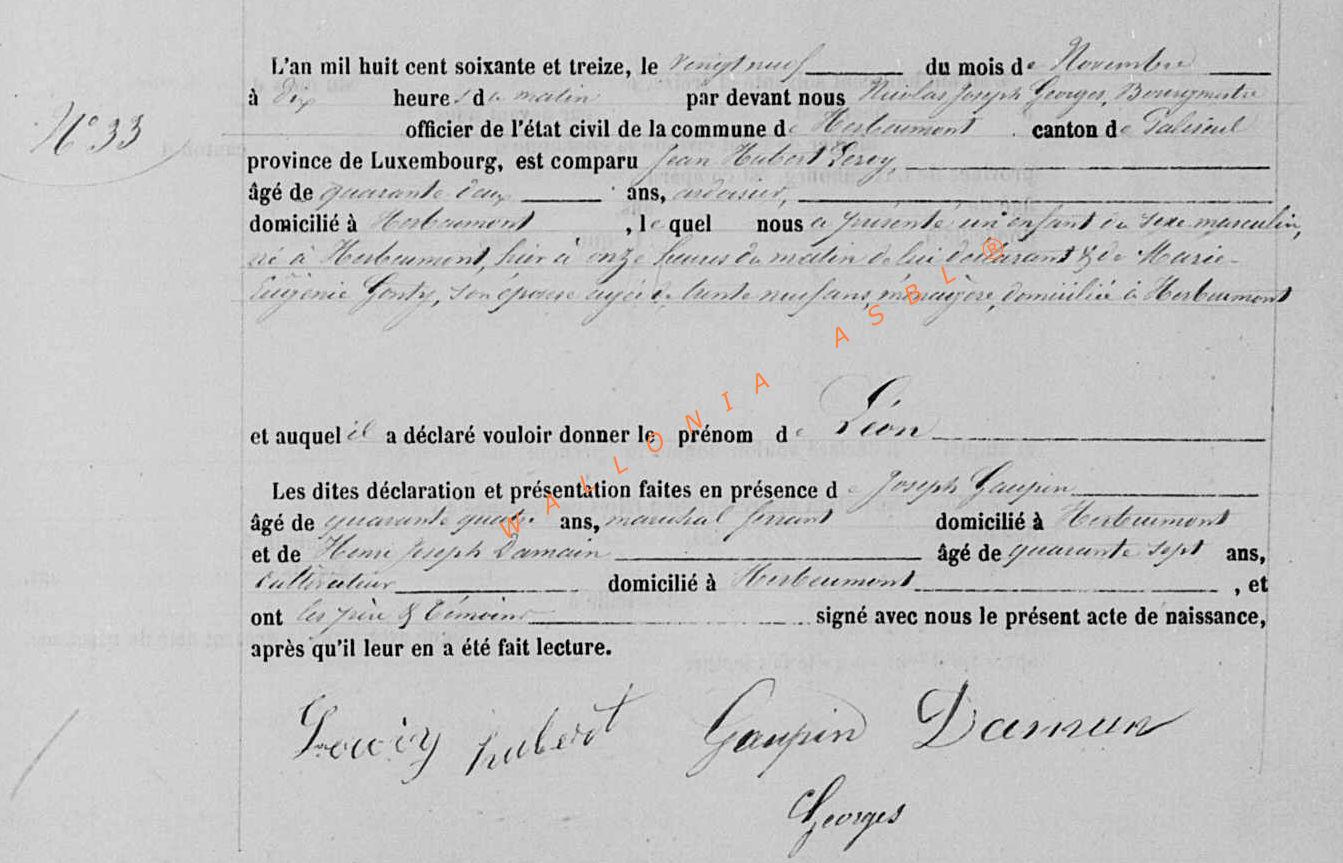 N° 33
L'an mil huit cent soixante et treize, le vingt neuf du mois de Novembre
à dix heures du matin par devant nous Nicolas Joseph Georges, Bourgmestre
officier de l'état civil de la commune de Herbeumont canton de Paliseul
province de Luxembourg, est comparu Jean Hubert Leroy,
âgé de quarante deux ans, ardoisier,
domicilié à Herbeumont, lequel nous a présenté un enfant du sexe masculin,
né à Herbeumont, hier à onze heures du matin de lui déclarant & de Marie-
Eugénie Gonty, son épouse agée de trente neuf ans, ménagère, domiciliée à Herbeumont
et auquel il a déclaré vouloir donner le prénom de Léon
Les dites déclaration et présentation faites en présence de Joseph Gaupin
âgé de quarante quatre ans, maréchal ferrant domicilié à Herbeumont
et de Henri Joseph Damain âgé de quarante sept ans,
cultivateur domicilié à Herbeumont, et
ont les père & témoins signé avec nous le présent acte de naissance,
après qu'il leur en a été fait lecture.
hubert Gaupin
Georges
WALLONIA ASBL ®